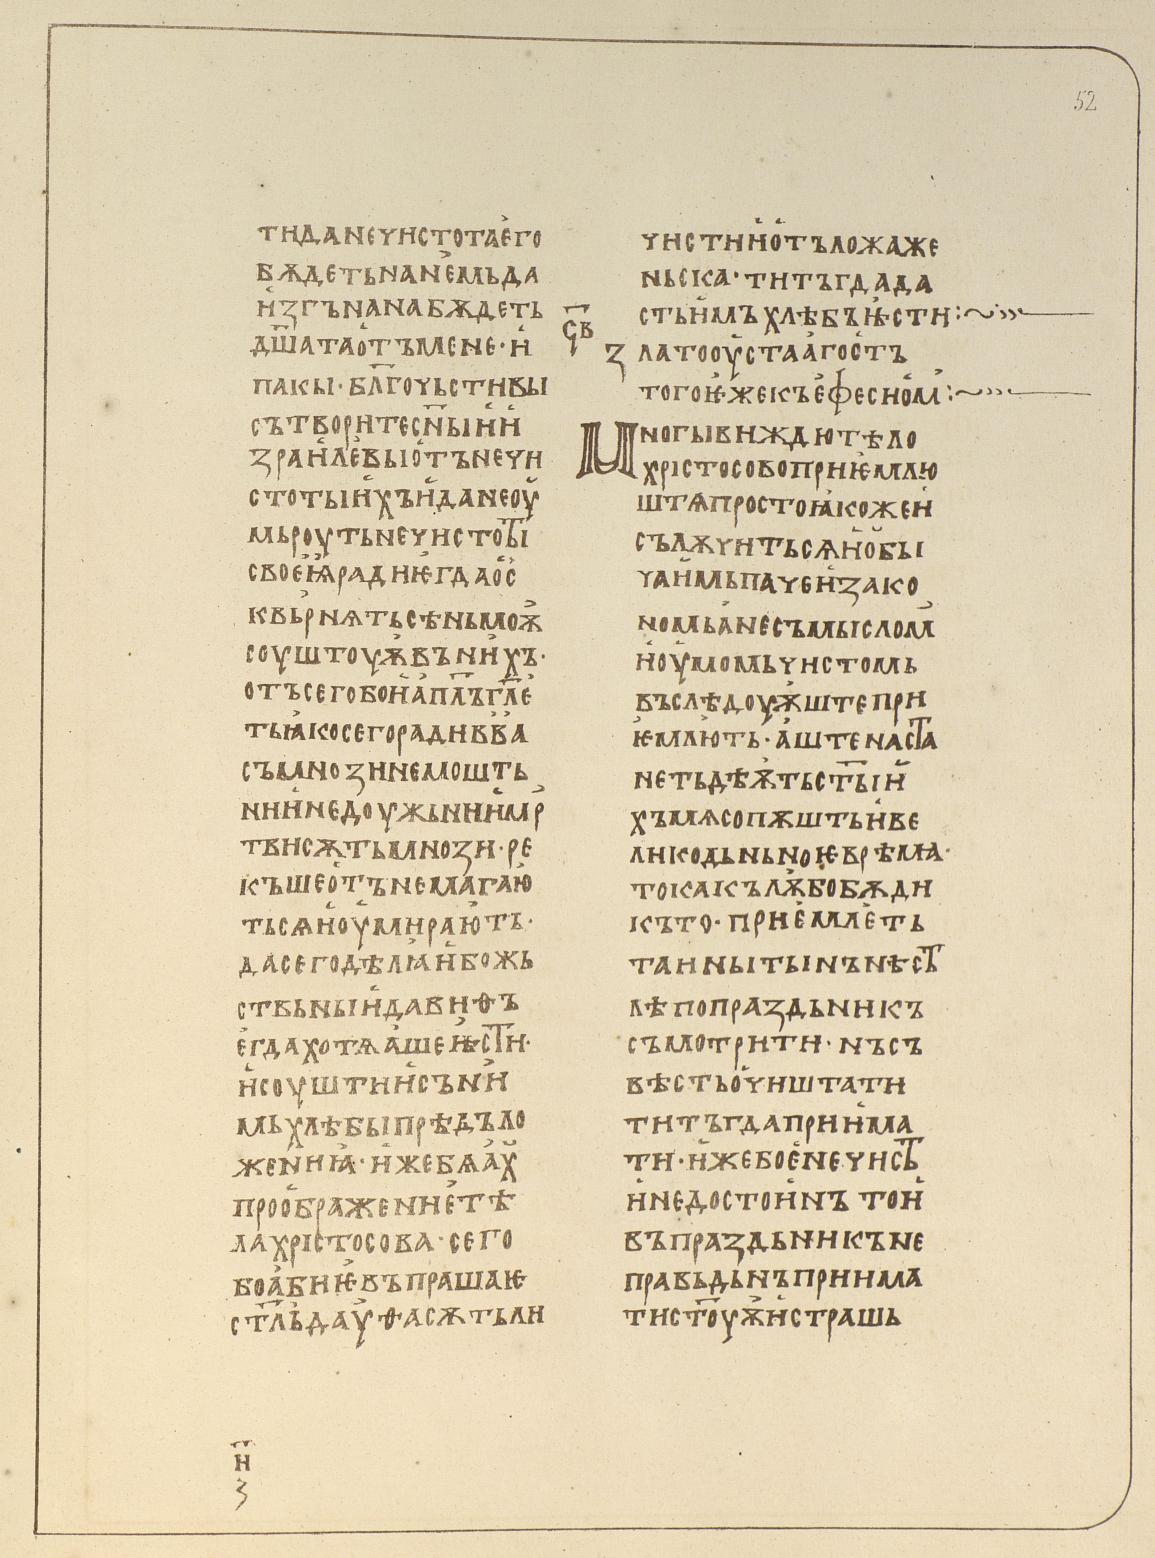 52
тиданечистотаего
бѫдетьнанемьда
изгънанабѫдеть
дш҃атаотъмене· и
пакы· бл҃гочьстивы
сътворитесн҃ыии
зраилевыиотънечи
стотыихъиданеоу
мьроутьнечистот҃ы
своеѭрадиѥгдаос
квьрнѧтьсѣньмоѫ
соуштоуѫвънихъ·
отъсегобоиап҃лъгл҃е
тьꙗкосегорадивъва
съмнозинемошть
нниинедоужьнниимр
твисѫтьмнози· ре
къшеотънемагаю
тьсѧиоумираютъ·
дасегодѣлꙗибожь
ствьныидавиѳъ
егдахотѧашеꙗст҃и·
исоуштиисъни
мьхлѣбыпрѣдъло
жениꙗ· ижебѧах
проображениетѣ
лахрістосова· сего
боабиѥвъпрашаѥ
ст҃льдаѵѳасѫтьли
чистииотъложаже
ньска· титъгдада
стьимъхлѣбъꙗсти:~
с҃в
златооустаагостъ
тогоѥжекъефесиом:~
Многывиждютѣло
хрістосовоприѥмлю
штѧпростоꙗкожеи
сълѫчитьсѧиобы
чаимьпачеизако
номьанесъмысломь
иоумомьчистомь
въслѣдоуѫштепри
ѥмлють· аштенаст҃а
нетьдѣѫтьст҃ыи
хъмѧсопѫштьиве
ликодьньноѥврѣмѧ·
токакълѫбобѫди
къто· приемлеть
таинытынънѣст҃ъ
лѣпопраздьникъ
съмотрити· нъсъ
вѣстьочиштати
титъгдаприима
ти· ижебоенечист҃ъ
инедостоинъ тои
въпраздьникъне
правьдьнъприима
тист҃оуѫистрашь
и҃
з